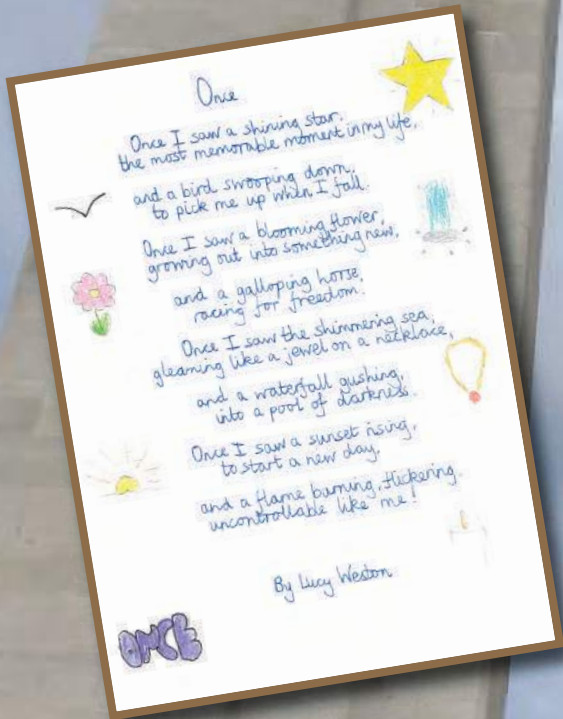 Once
Once I saw a shining star,
the most memorable moment in my life,
and a bird swooping down,
to pick me up when I fall.
Once I saw a blooming flower,
growing out into something new,
and a galloping horse,
racing for freedom.
Once I saw the shimmering sea,
gleaming like a jewel on a necklace,
and a waterfall gushing,
into a pool of darkness.
Once I saw a sunset rising,
to start a new day,
and a flame burning, flickering,
uncontrollable like me!
By Lucy Weston
ONCE